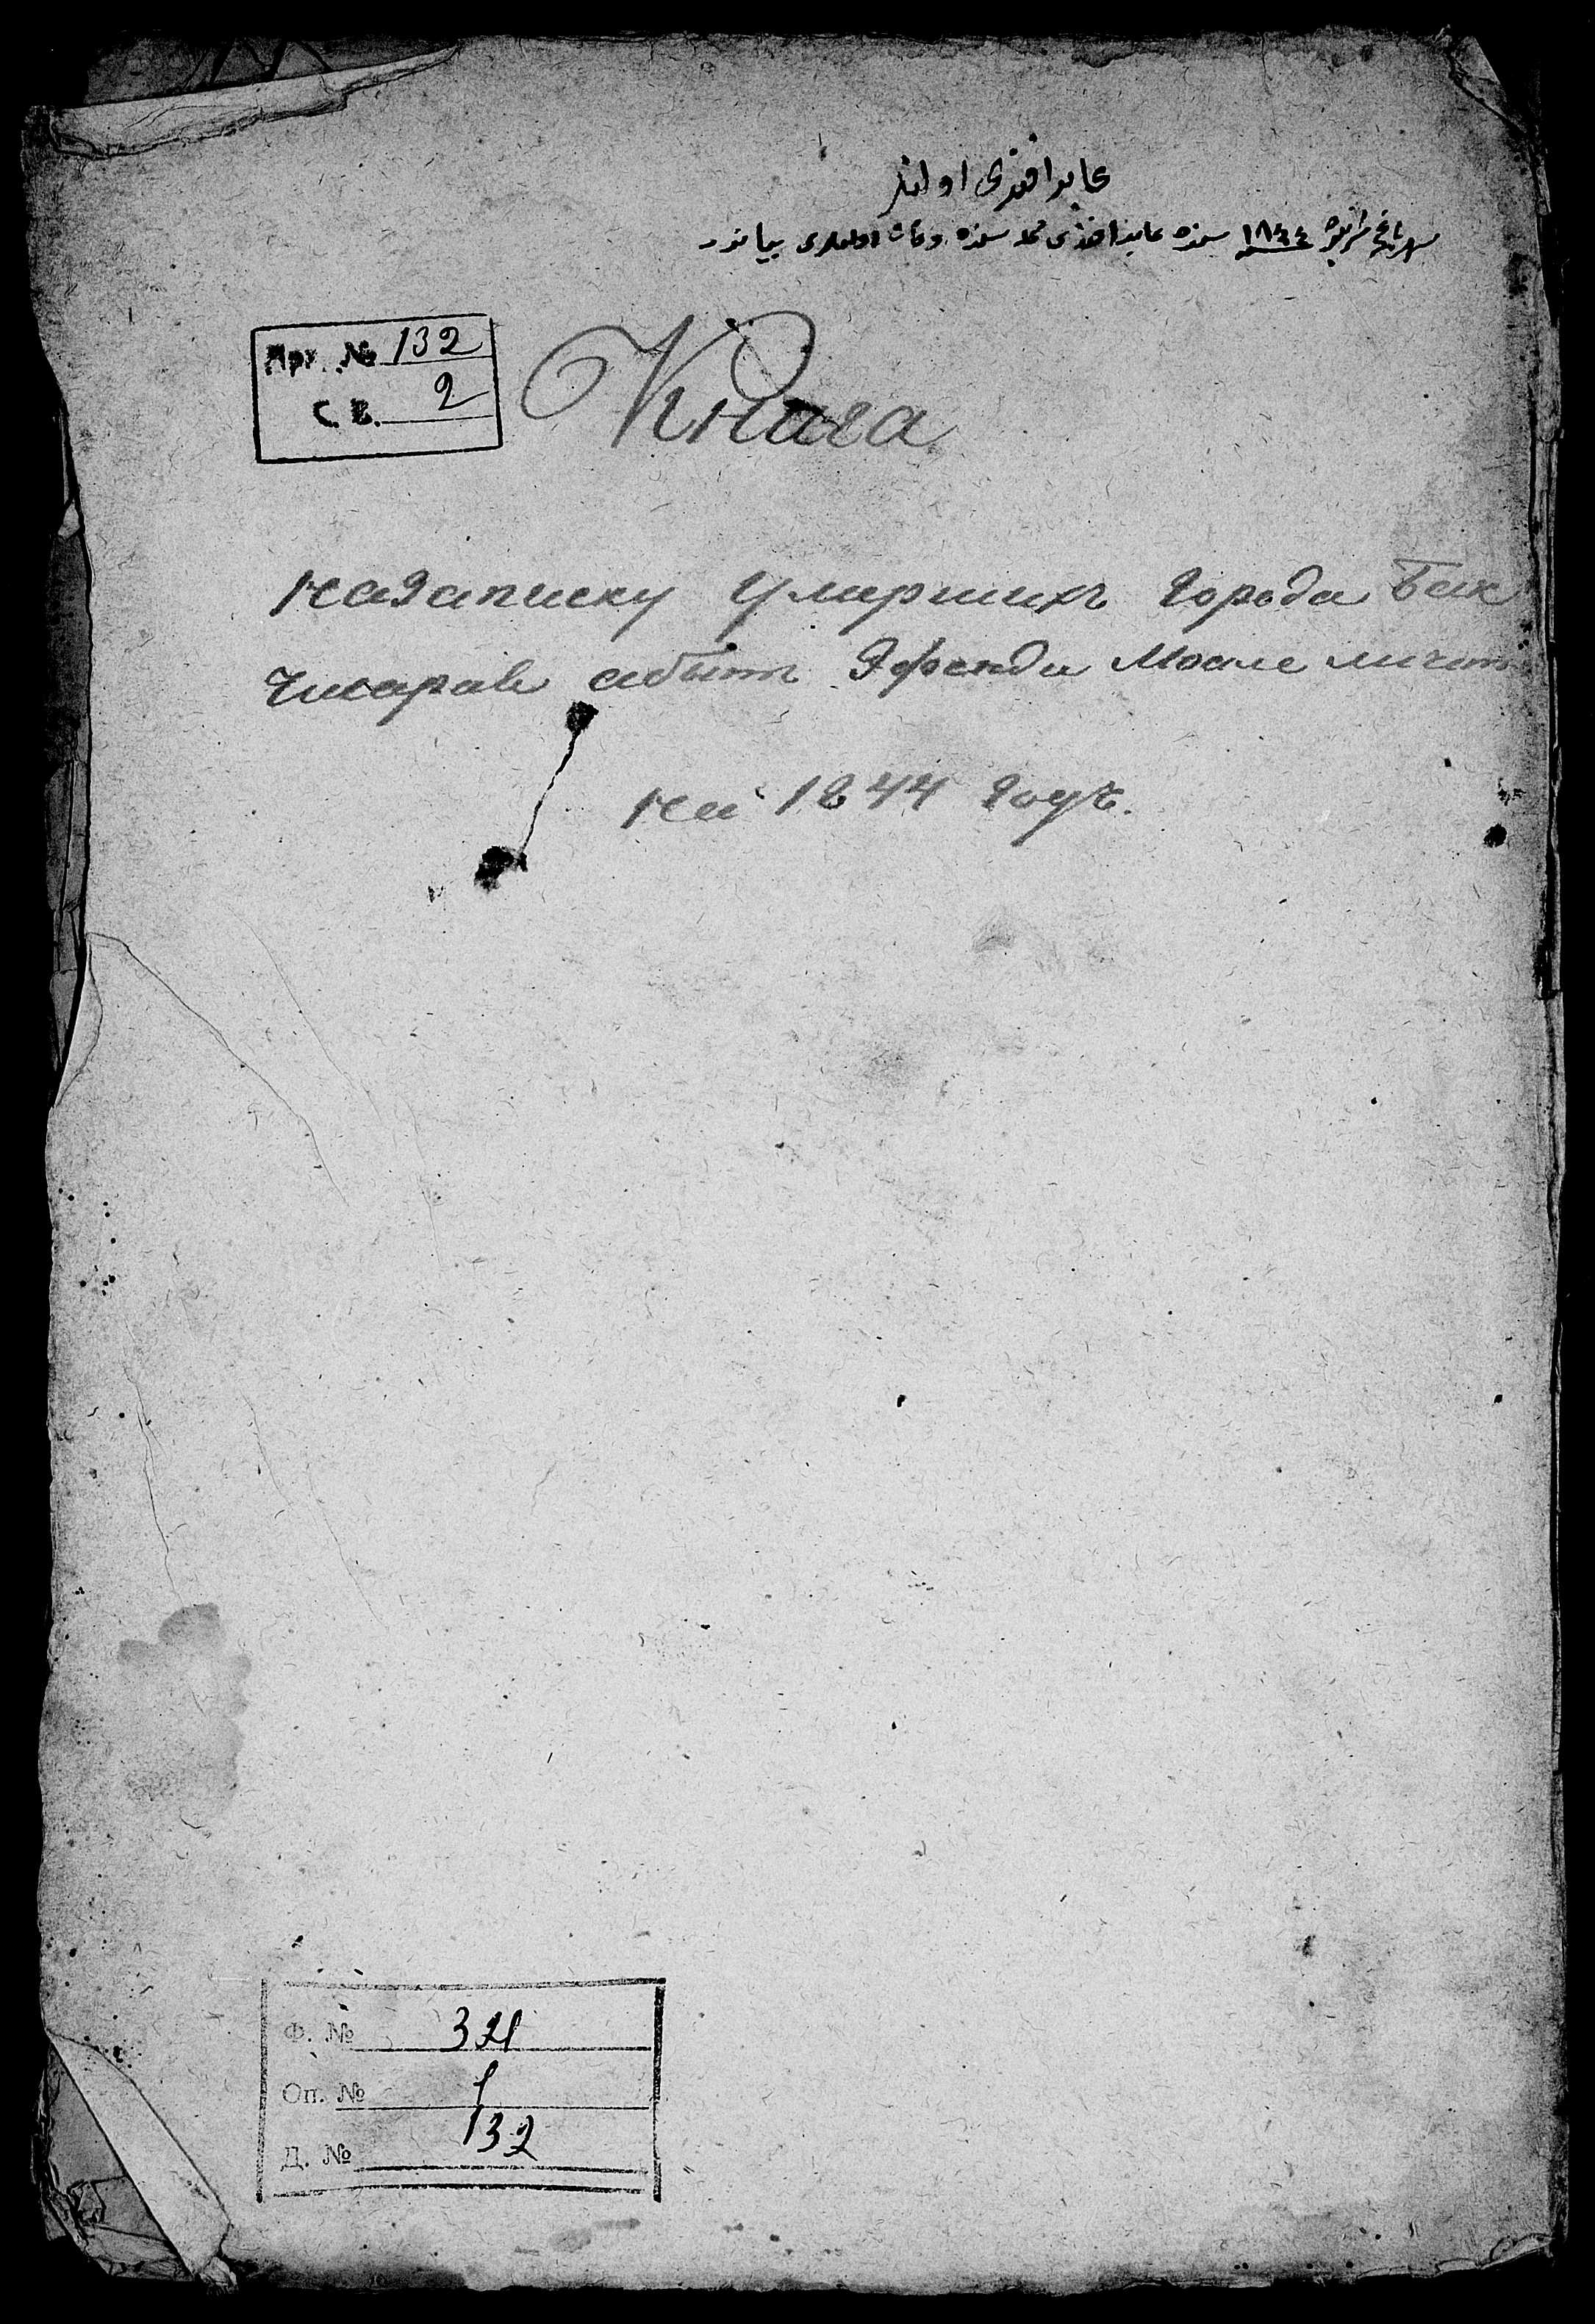 عابد افندی اولنلر
١٨٤٤ سنه عابد افندی محله سنده وفات اولنلری بیاندر
Арх. № 132
С. В. 2
Книга
на Записку Умерших Города Бак
чисарае абыт Эфенди Моале мечит
на 1844 Году.
Ф. № 321
Оп. № 1
Д. № 132